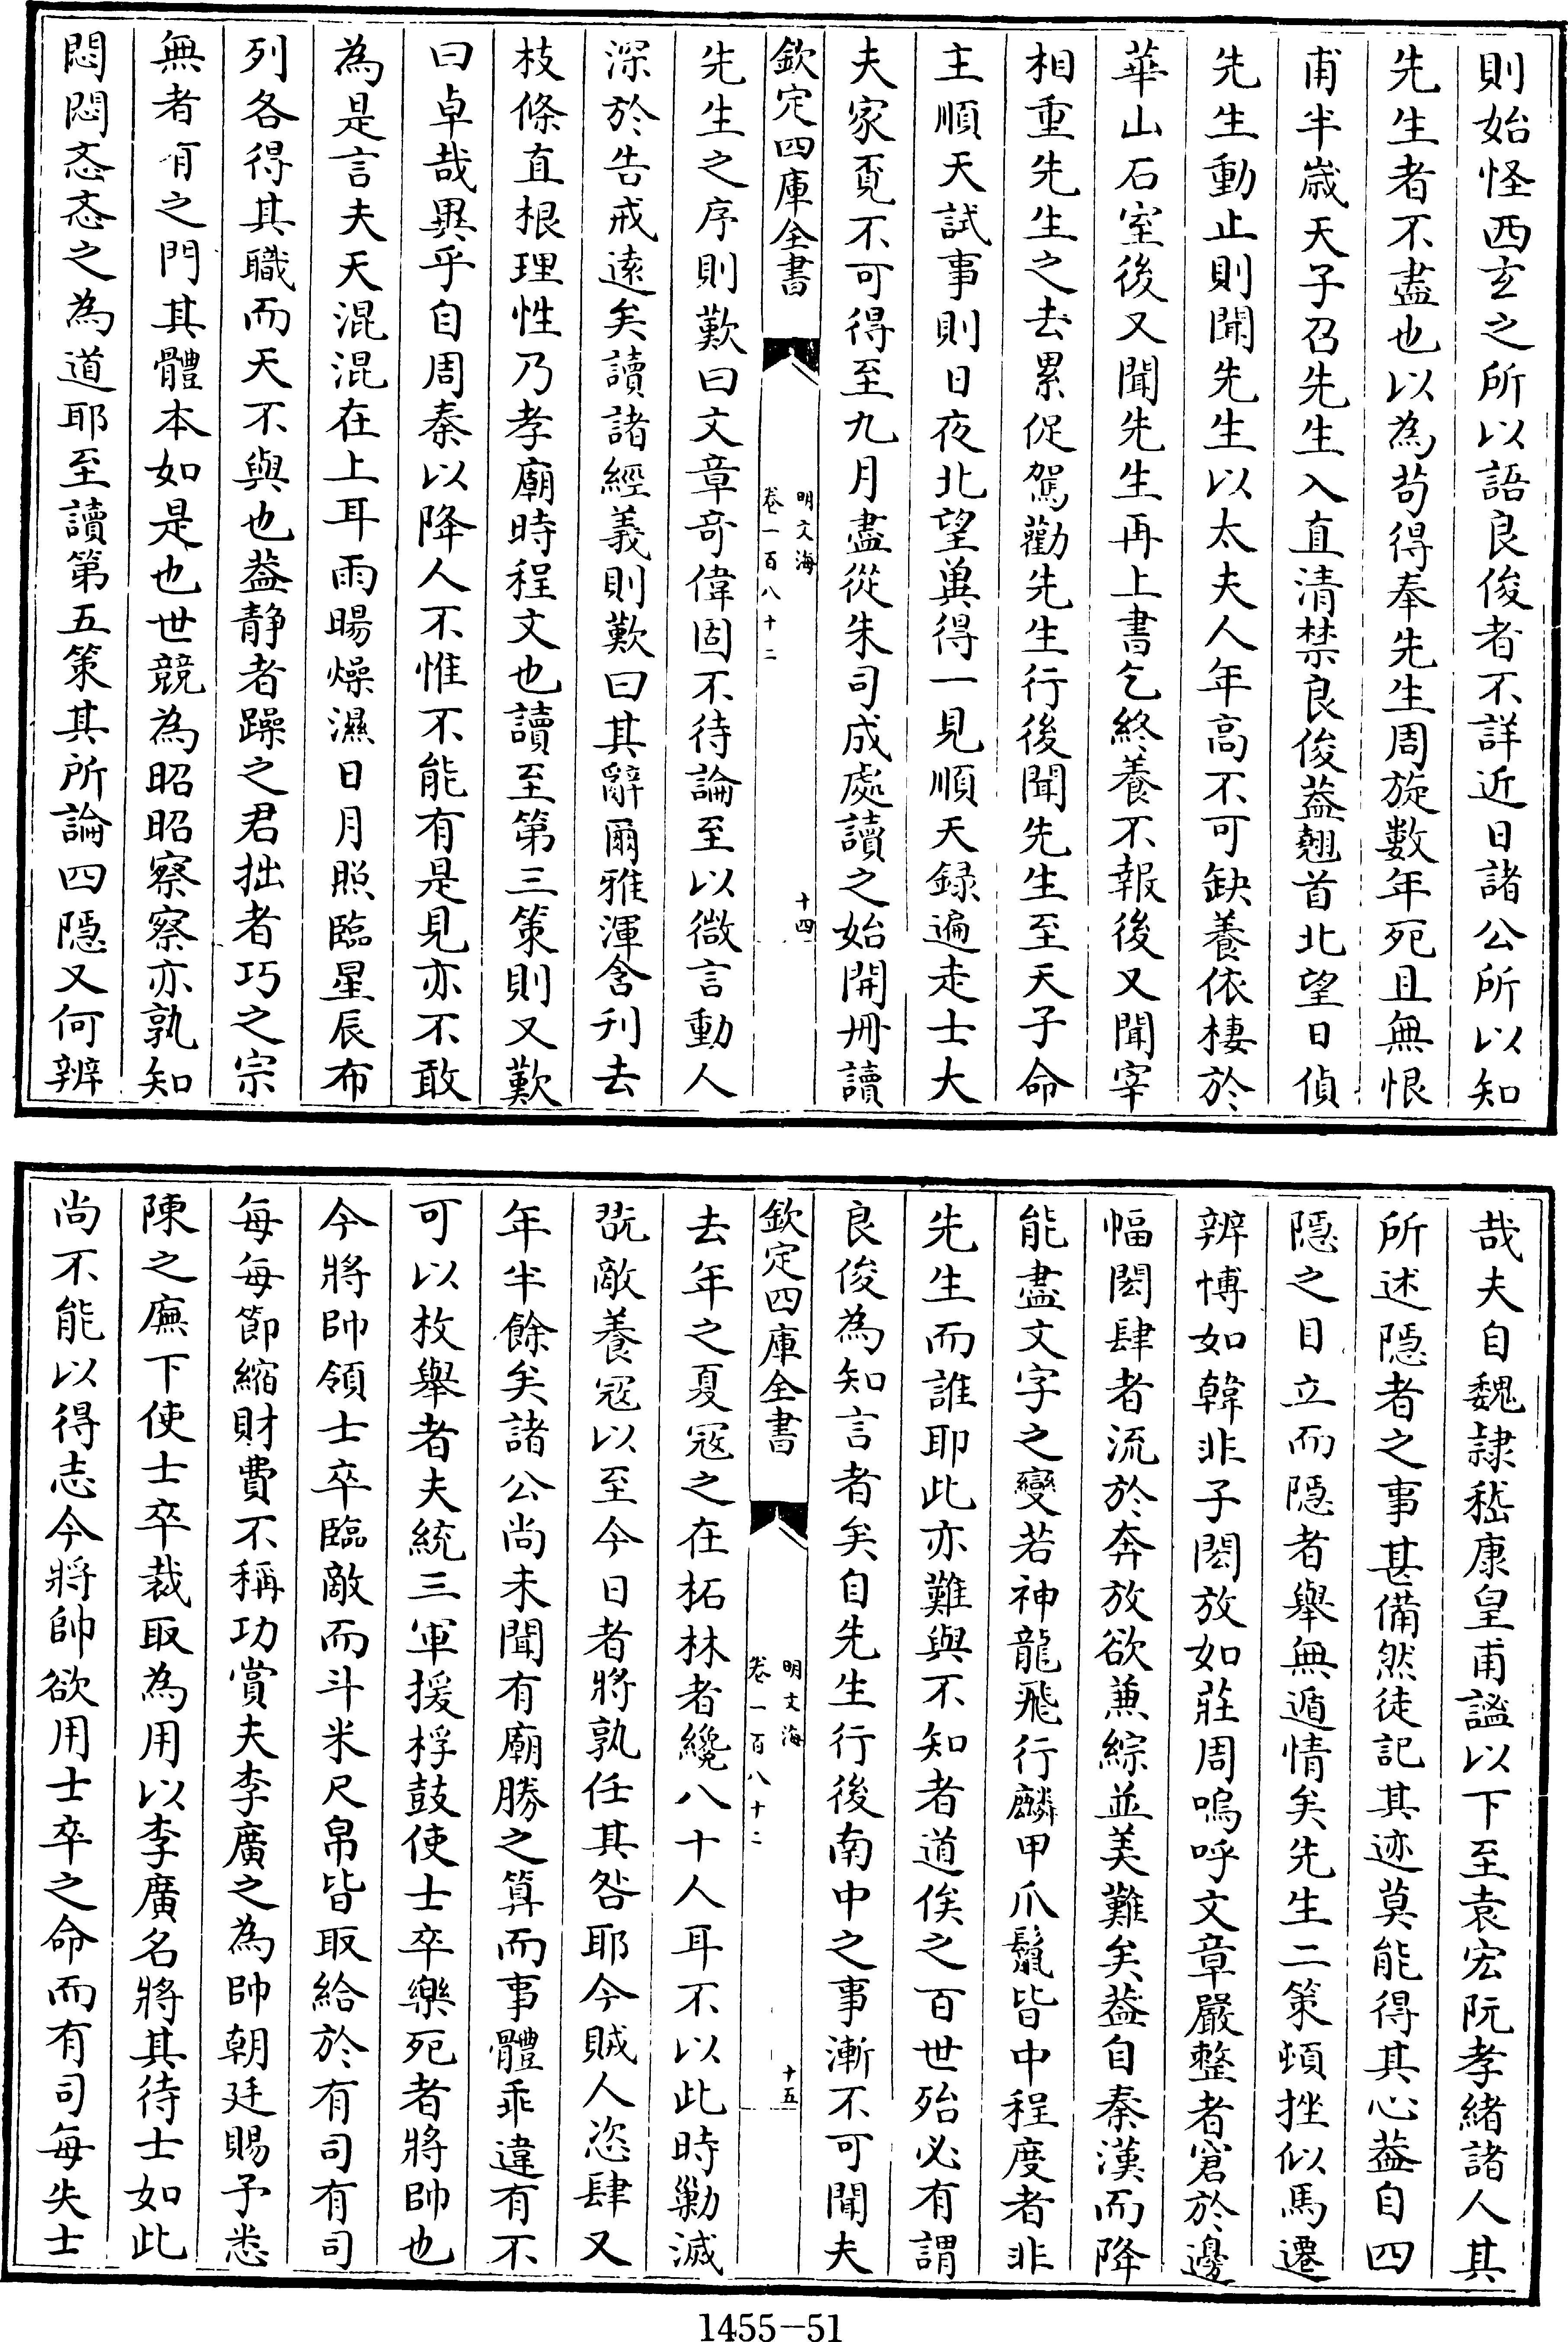 則始怪西玄之所以語良俊者不詳近日諸公所以知
先生者不盡也以為苟得奉先生周旋數年死且無恨
甫半嵗天子召先生入直清禁良俊葢翹首北望日偵
先生動止則聞先生以太夫人年高不可缺養依棲於
華山石室後又聞先生再上書乞終養不報後又聞宰
相重先生之去累促駕勸先生行後聞先生至天子命
主順天試事則日夜北望兾得一見順天録遍走士大
夫家覔不可得至九月盡從朱司成處讀之始開冊讀
欽定四庫全書
明文海
卷一百八十二
十四
先生之序則歎曰文章竒偉固不待論至以微言動人
深於告戒逺矣讀諸經義則歎曰其辭爾雅渾含刋去
枝條直根理性乃孝廟時程文也讀至第三策則又歎
曰卓哉異乎自周秦以降人不惟不能有是見亦不敢
為是言夫天混混在上耳雨暘燥濕日月照臨星辰布
列各得其職而天不與也葢静者躁之君拙者巧之宗
無者有之門其體本如是也世競為昭昭察察亦孰知
悶悶忞忞之為道耶至讀第五策其所論四隠又何辨
哉夫自魏隷嵇康皇甫謐以下至袁宏阮孝緒諸人其
所述隠者之事甚備然徒記其迹莫能得其心葢自四
隠之目立而隠者舉無遁情矣先生二策頓挫似馬遷
辨博如韓非子閎放如莊周嗚呼文章嚴整者窘於邊
幅閎肆者流於奔放欲兼綜並美難矣葢自秦漢而降
能盡文字之變若神龍飛行麟甲爪鬛皆中程度者非
先生而誰耶此亦難與不知者道俟之百世殆必有謂
良俊為知言者矣自先生行後南中之事漸不可聞夫
欽定四庫全書
明文海
卷一百八十二
十五
去年之夏冦之在柘林者纔八十人耳不以此時勦滅
翫敵養冦以至今日者將孰任其咎耶今賊人恣肆又
年半餘矣諸公尚未聞有廟勝之算而事體乖違有不
可以枚舉者夫統三軍援桴鼓使士卒樂死者將帥也
今將帥領士卒臨敵而斗米尺帛皆取給於有司有司
每每節縮財費不稱功賞夫李廣之為帥朝廷賜予悉
陳之廡下使士卒裁取為用以李廣名將其待士如此
尚不能以得志今將帥欲用士卒之命而有司每失士
1455-51